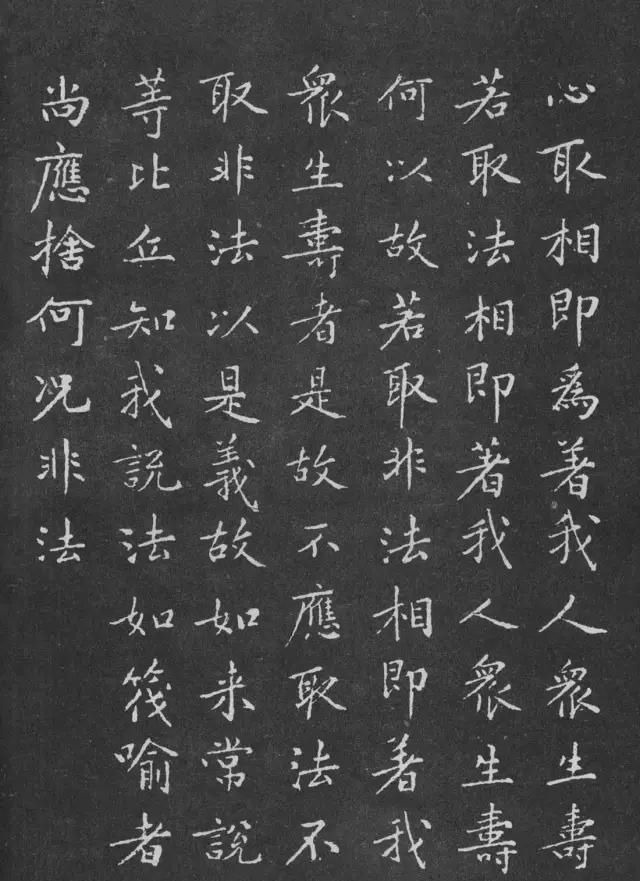 心取相即爲着我人衆生壽
若取法相即著我人衆生壽
何以故若取非法相即着我
衆生壽者是故不應取法不
取非法以是義故如来常說
等比丘知我說法如筏喻者
尚應捨何况非法